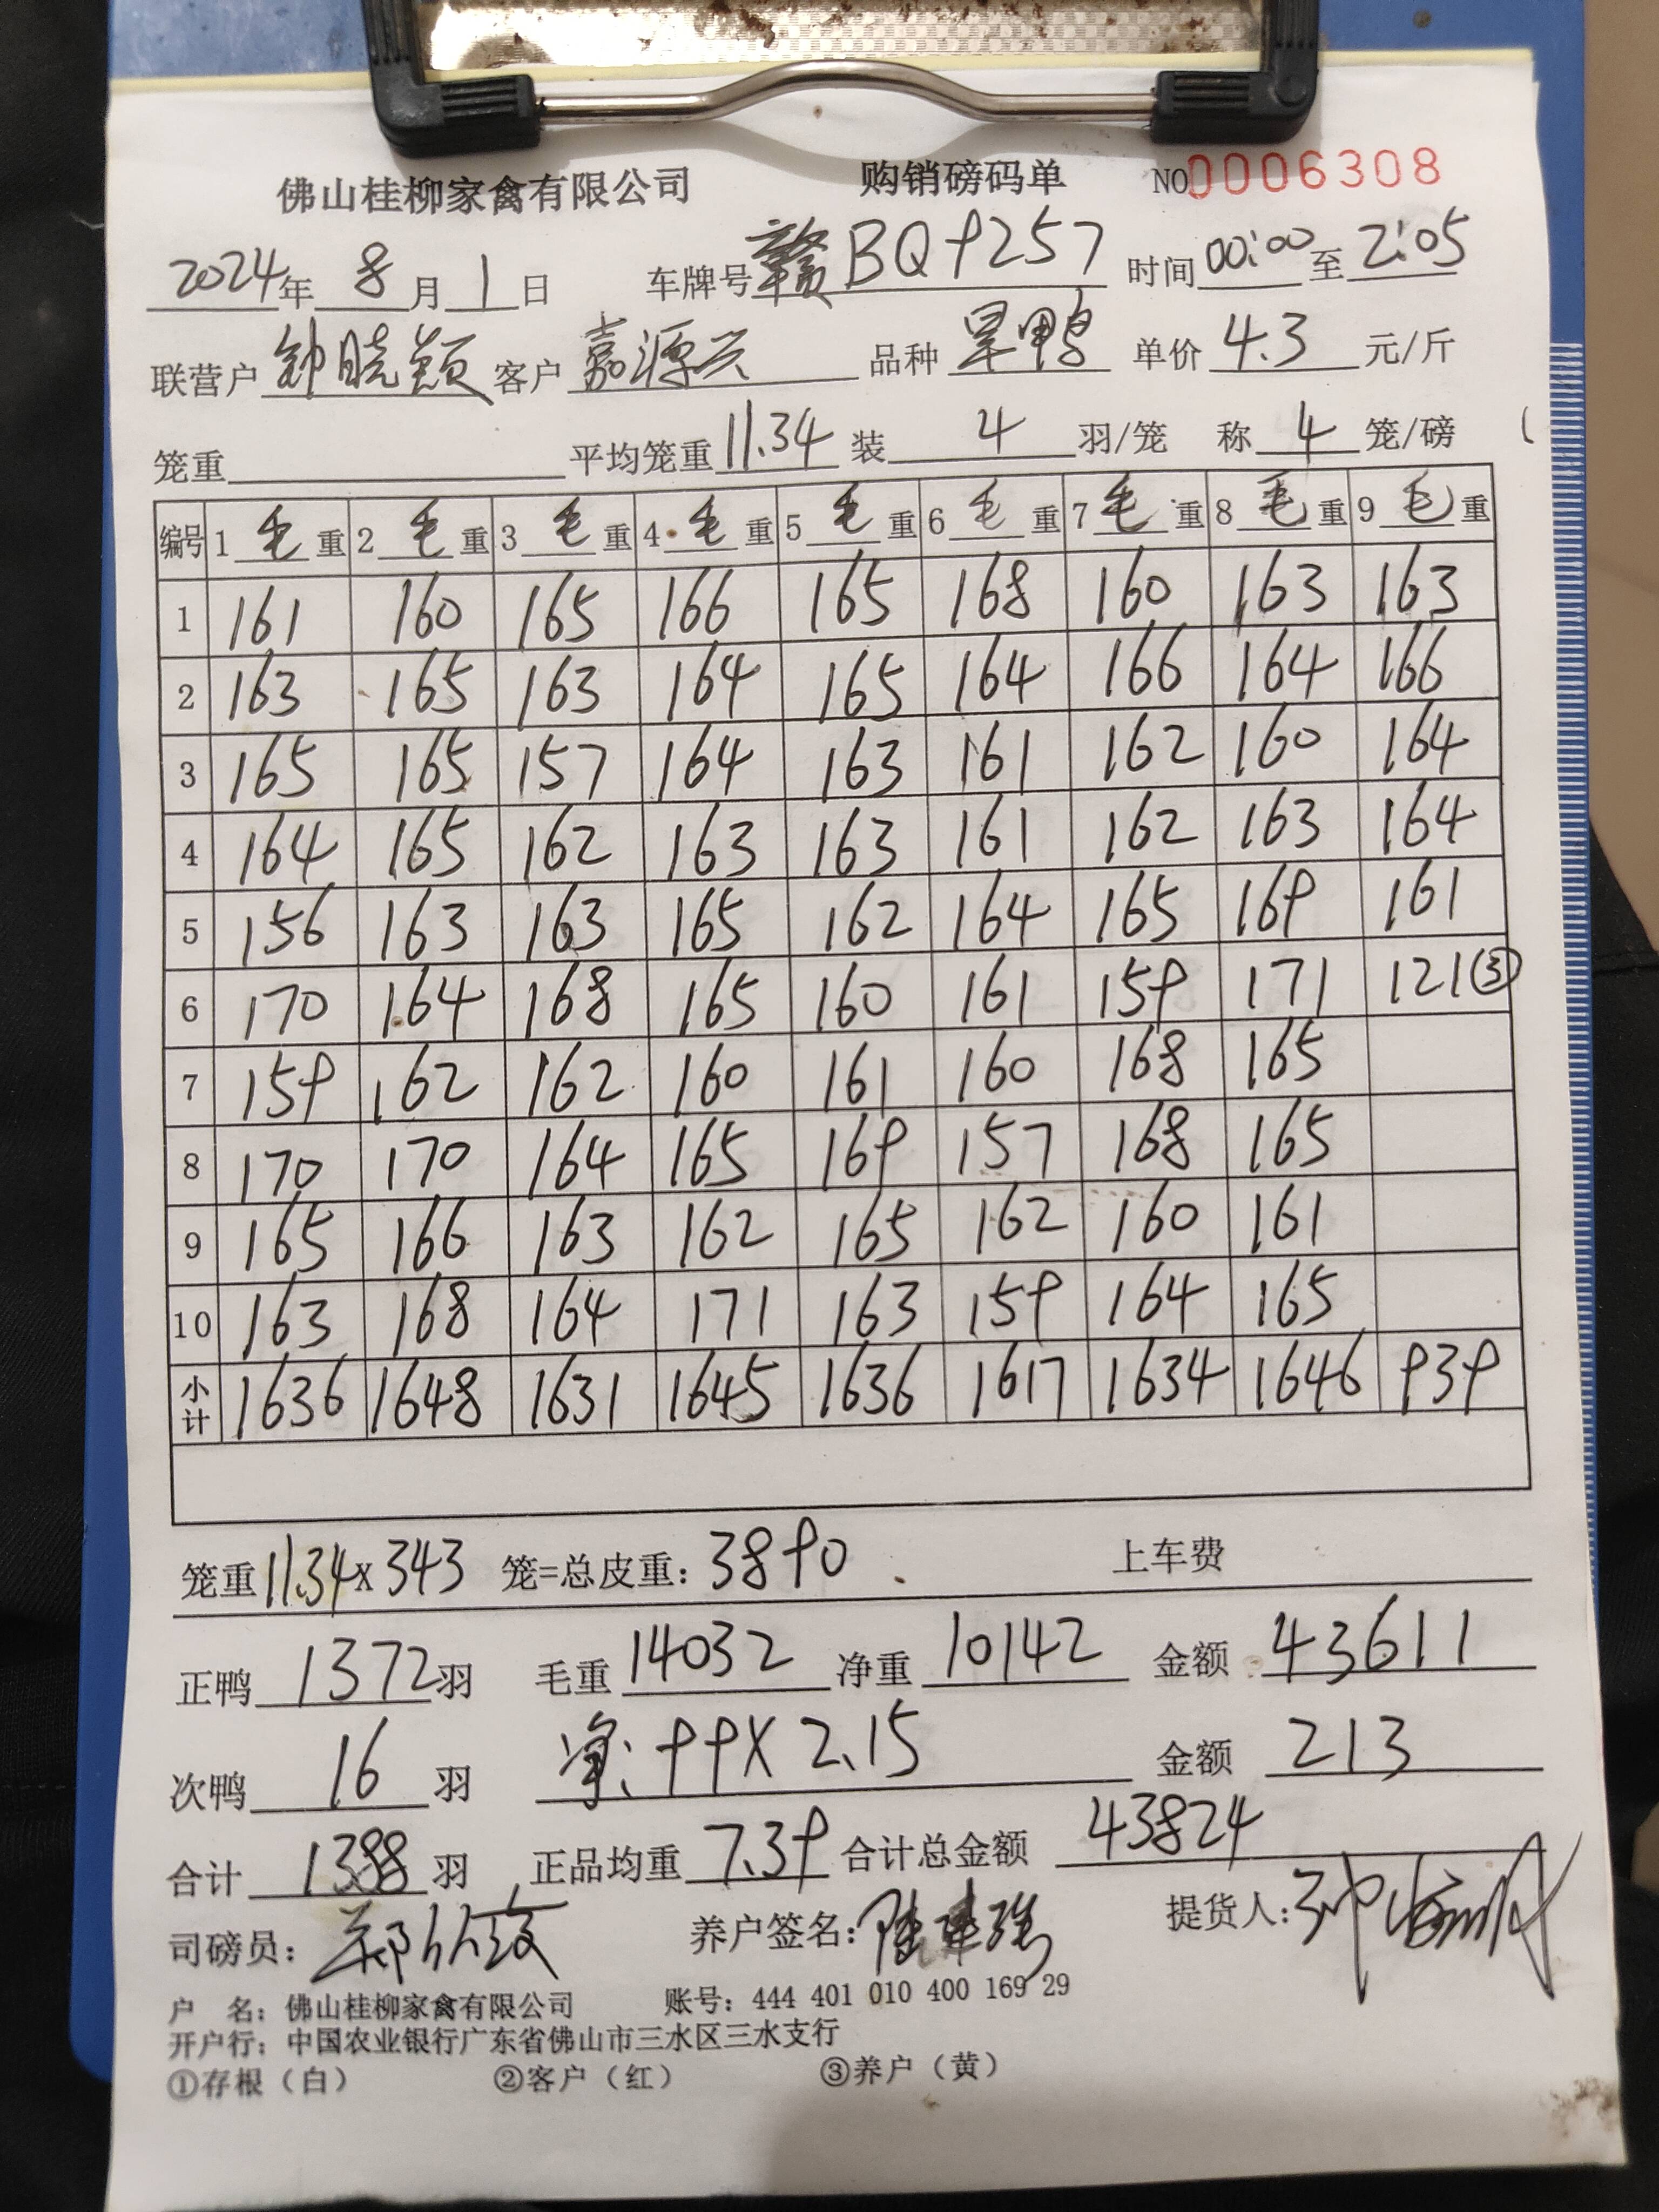 佛山桂柳家禽有限公司 购销磅码单 NO0006308
2024年 8月 1日 车牌号 赣BQ9257 时间 00:00 至 2:05
联营户 钟晓颖 客户 嘉源兴 品种 旱鸭 单价 4.3 元/斤
笼重 平均笼重 11.34 装 4 羽/笼 称 4 笼/磅
编号 1 毛 重 2 毛 重 3 毛 重 4 毛 重 5 毛 重 6 毛 重 7 毛 重 8 毛 重 9 毛 重
1 161 160 165 166 165 168 160 163 163
2 163 165 163 164 165 164 166 164 166
3 165 165 157 164 163 161 162 160 164
4 164 165 162 163 163 161 162 163 164
5 156 163 163 165 162 164 165 169 161
6 170 164 168 165 160 161 159 171 121③
7 159 162 162 160 161 160 168 165
8 170 170 164 165 169 157 168 165
9 165 166 163 162 165 162 160 161
10 163 168 164 171 163 159 164 165
小计 1636 1648 1631 1645 1636 1617 1634 1646 939
笼重 11.34x 343 笼=总皮重: 3890 上车费
正鸭 1372羽 毛重 14032 净重 10142 金额 43611
次鸭 16 羽 净: 99X 2.15 金额 213
合计 1388 羽 正品均重 7.39 合计总金额 43824
司磅员: 养户签名: 提货人:
户 名: 佛山桂柳家禽有限公司 账号: 444 401 010 400 169 29
开户行: 中国农业银行广东省佛山市三水区三水支行
①存根（白） ②客户（红） ③养户（黄）